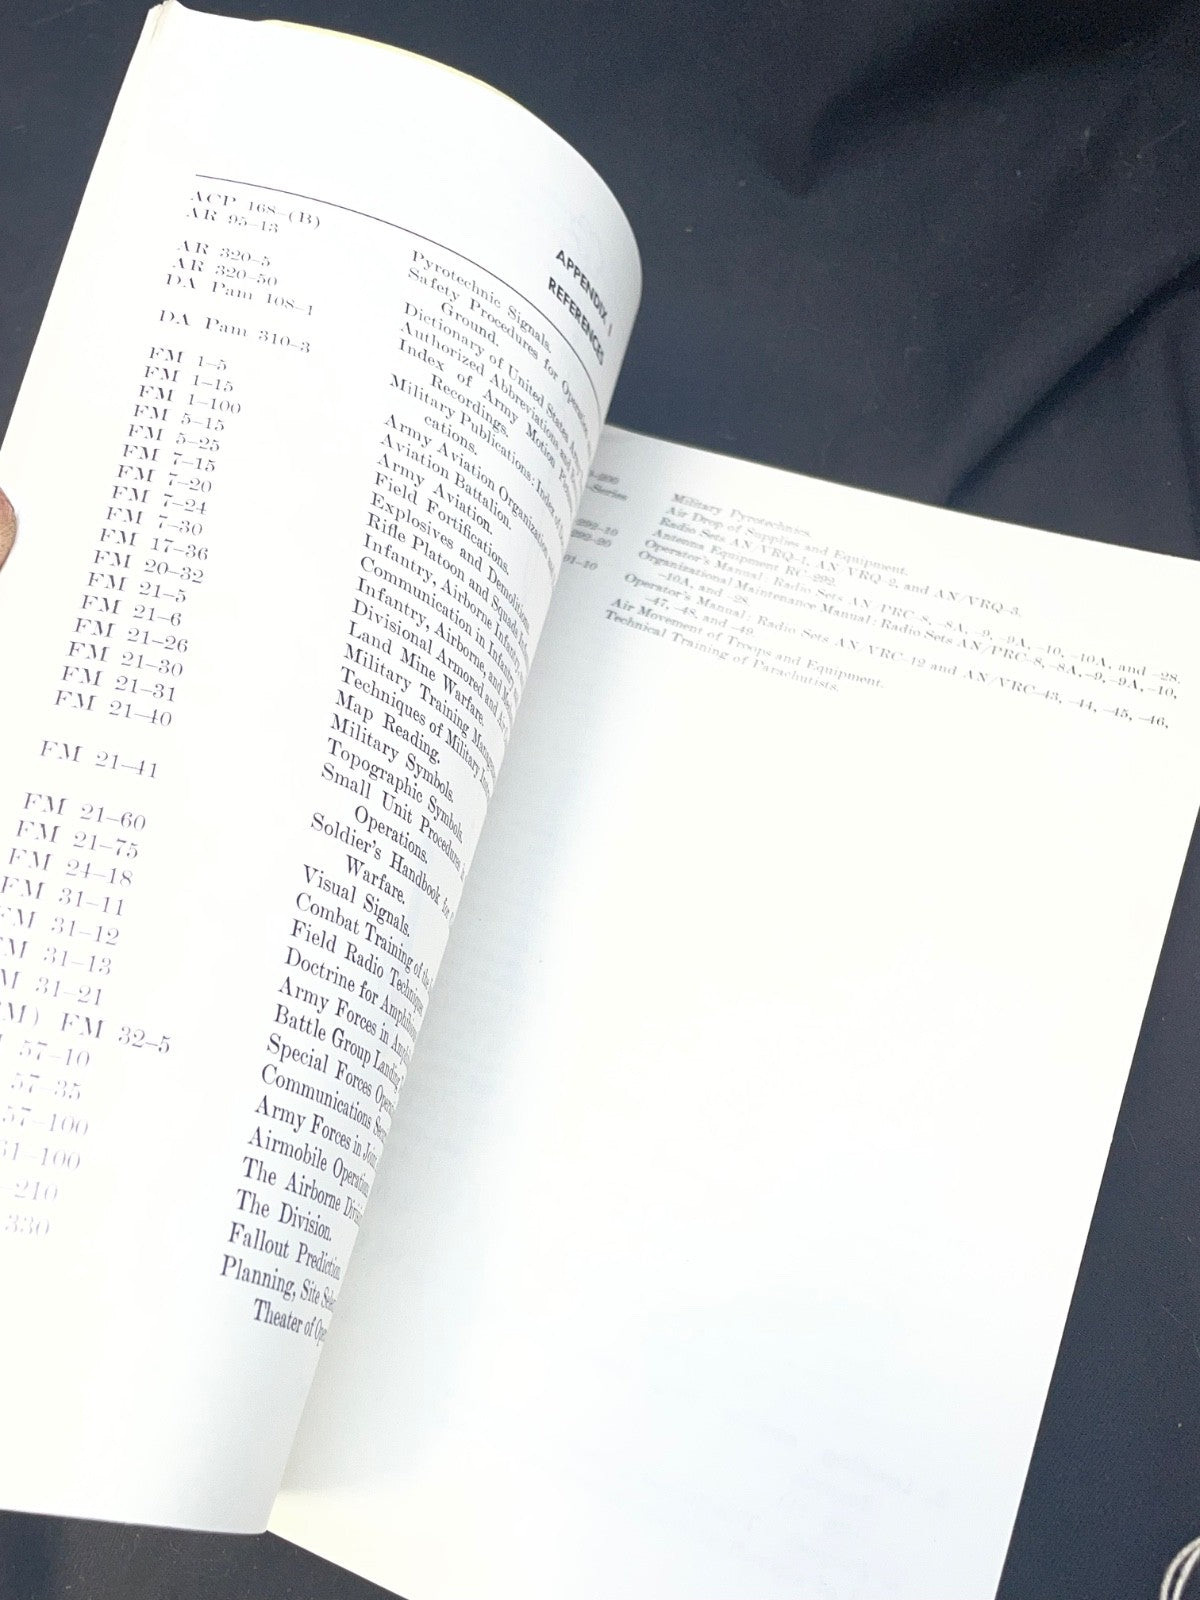 APPENDIX I
REFERENCES
ACP 168–(B) Pyrotechnic Signals.
AR 95–13 Safety Procedures for
Ground.
AR 320–5 Dictionary of United States
AR 320–50 Authorized Abbreviations and
DA Pam 108–1 Index of Army Motion
Recordings.
DA Pam 310–3 Military Publications: Index of
cations.
FM 1–5 Army Aviation Organization
FM 1–15 Aviation Battalion.
FM 1–100 Army Aviation.
FM 5–15 Field Fortifications.
FM 5–25 Explosives and Demolitions.
FM 7–15 Rifle Platoon and Squads
FM 7–20 Infantry, Airborne
FM 7–24 Communication in Infantry
FM 7–30 Infantry, Airborne, and
FM 17–36 Divisional Armored and
FM 20–32 Land Mine Warfare.
FM 21–5 Military Training
FM 21–6 Techniques of Military
FM 21–26 Map Reading.
FM 21–30 Military Symbols.
FM 21–31 Topographic Symbols.
FM 21–40 Small Unit Procedures
Operations.
FM 21–41 Soldier's Handbook for
Warfare.
FM 21–60 Visual Signals.
FM 21–75 Combat Training of the
FM 24–18 Field Radio Techniques
FM 31–11 Doctrine for
FM 31–12 Army Forces in
FM 31–13 Battle Group Landing
M 31–21 Special Forces
M) FM 32–5 Communications
57–10 Army Forces in Joint
57–35 Airmobile
57–100 The Airborne
61–100 The Division.
–210 Fallout Prediction
330 Planning, Site
Theater of
–200 Military Pyrotechnics.
–Series Air Drop of Supplies and Equipment.
Radio Sets AN/VRQ–1, AN/VRQ–2, and AN/VRQ–3.
Antenna Equipment RC–292.
292–10 Operator's Manual: Radio Sets AN/PRC–8, –8A, –9, –9A, –10, –10A, and –28.
292–20 Organizational Maintenance Manual: Radio Sets AN/PRC–8, –8A, –9, –9A, –10,
–10A, and –28.
01–10 Operator's Manual: Radio Sets AN/VRC–12 and AN/VRC–43, –44, –45, –46,
–47, –48, and –49
Air Movement of Troops and Equipment.
Technical Training of Parachutists.